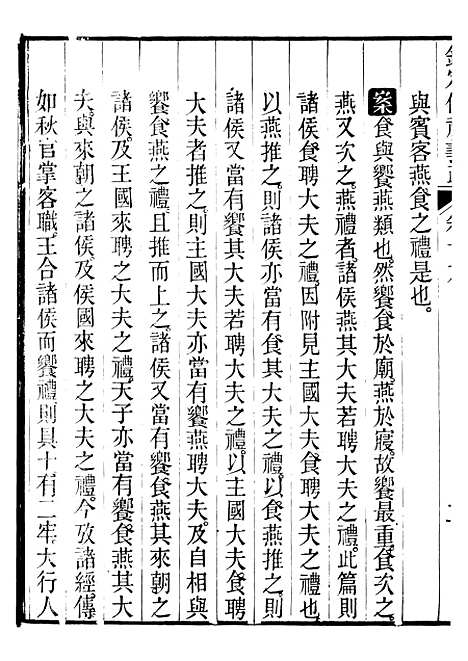 與賓客燕食之禮是也。
案食與饗燕類也。然饗食於廟。燕於寢。故饗最重。食次之。
燕又次之。燕禮者。諸侯燕其大夫若聘大夫之禮。此篇則
諸侯食聘大夫之禮。因附見主國大夫食聘大夫之禮也
以燕推之。則諸侯亦當有食其大夫之禮。以食燕推之。則
諸侯又當有饗其大夫若聘大夫之禮。以主國大夫食聘
大夫者推之。則主國大夫亦當有饗燕聘大夫。及自相與
饗食燕之禮。且推而上之。諸侯又當有饗食燕其來朝之
諸侯。及王國來聘之大夫之禮。天子亦當有饗食燕其大
夫。與來朝之諸侯。及侯國來聘之大夫之禮。今攷諸經傳
如秋官掌客職。王合諸侯而饗禮。則具十有二牢。大行人